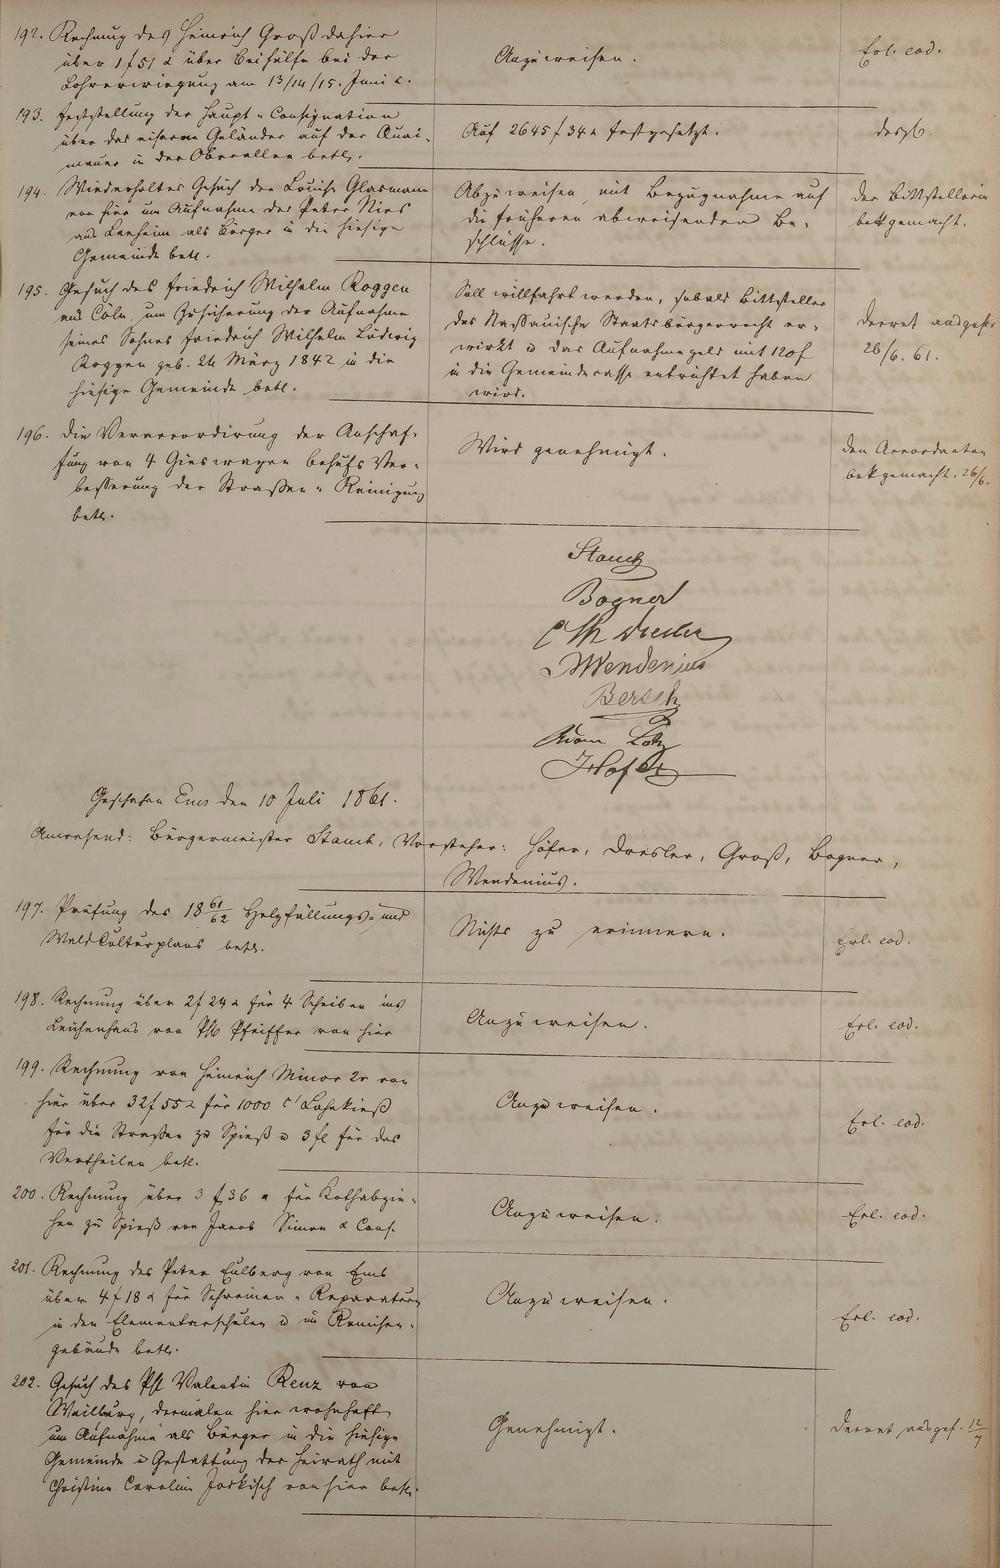 192. Rechnung des Heinrich Groß dahier
über 1 f 51 x über Beihülfe bei der
Lohrverwiegung am 13/14/15. Juni c.
Anzuweisen.
Erl. eod.
193. Feststellung der Haupt-Consignation
über das eiserne Geländer auf der Quai-
mauer in der Oberallee betr.
Auf 2645 f 34 x festgesetzt.
desgl.
194. Wiederholtes Gesuch der Louise Glasmann
von hier um Aufnahme des Peter Nies
aus als Bürger in die hiesige
Gemeinde betr.
Abzuweisen mit Bezugnahme auf
die früheren abweisenden Be-
schlüsse.
Der Bittstellerin
bekgemacht.
195. Gesuch des Friedrich Wilhelm Roggen
aus Cöln, um Zusicherung der Aufnahme
seines Sohnes Friedrich Wilhelm Ludwig
Roggen geb. 24 März 1842 in die
hiesige Gemeinde betr.
Soll willfahrt werden, sobald Bittsteller
das Nassauische Staatsbürgerrecht er-
wirkt u das Aufnahmegeld mit 120 f
in die Gemeindecasse entrichtet haben
wird.
Decret ausgef.
26/6. 61.
196. Die Veraccordirung der Anschaf-
fung von 4 Gieswagen behufs Ver-
besserung der Straßen-Reinigung
betr.
Wird genehmigt.
Den Accordanten
bekgemacht. 26/6.
Stamb
Bogner
C Th Dresler
Wendenius
Bersch
Adam Lotz
Höfer
Geschehen Ems den 10 Juli 1861.
Anwesend: Bürgermeister Stamb, Vorsteher: Höfer, Dresler, Groß, Bogner,
Wendenius.
197. Prüfung des 18 61/62 Holzfällungs- und
Waldculturplans betr.
Nichts zu erinnern.
Erl. eod.
198. Rechnung über 2 f 24 x für 4 Scheiben ins
Leichenhaus von Ph. Pfeiffer von hier
Anzuweisen.
Erl. eod.
199. Rechnung von Heinrich Minor 2r von
hier über 32 f 55 x für 1000 c' Lahnkieß
für die Straßen zu Spieß u 3 fl für das
Vertheilen betr.
Anzuweisen.
Erl. eod.
200. Rechnung über 3 f 36 x für Kothabzie-
hen zu Spieß von Jacob Simon & Cons.
Anzuweisen.
Erl. eod.
201. Rechnung des Peter Eulberg von Ems
über 4 f 18 x für Schreiner-Reparaturen
in den Elementarschulen u im Remisen-
gebäude betr.
Anzuweisen.
Erl. eod.
202. Gesuch des Ph Valentin Renz von
Weilburg, dermalen hier wohnhaft
um Aufnahme als Bürger in die hiesige
Gemeinde u Gestattung der Heirath mit
Christine Caroline von hier betr.
Genehmigt.
Decret ausgef. 12/7